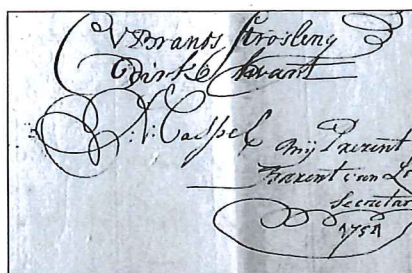 V Brands Strosling
Dirk Swart
:V: Caespel
mij Present
Barent van
Secretar
1751